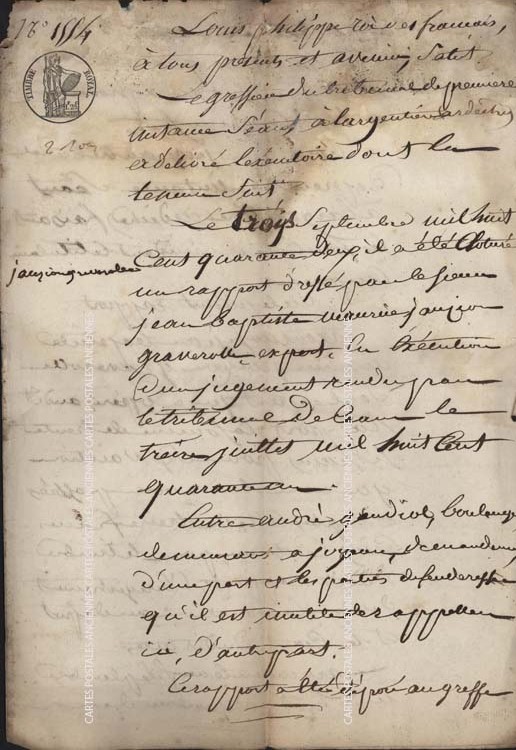 N° 1554
TIMBRE ROYAL
Louis philippe roi des francais,
à tous presents et avenir, Salut.
Le greffier du tribunal de premiere
instance Séant à largentière ardeche
a délivré lexécutoire dont la
teneur Suit
Le trois Septembre mil huit
Cent quarante deux, il a été Cloturé
un rapport dressé par le sieur
jean Baptiste
expert, En Exécution
d'un jugement rendu par
le tribunal de Ceans le
treize juillet mil huit Cent
quarante un.
Entre andré boulanger
demeurant a joyeuse, demandeur
d'une part et les parties defenderesses
qu'il est inutile de rappeller
ici, d'autre part.
Ce rapport a été déposé au greffe
CARTES POSTALES ANCIENNES CARTES POSTALES ANCIENNES CARTES POSTALES ANCIENNES